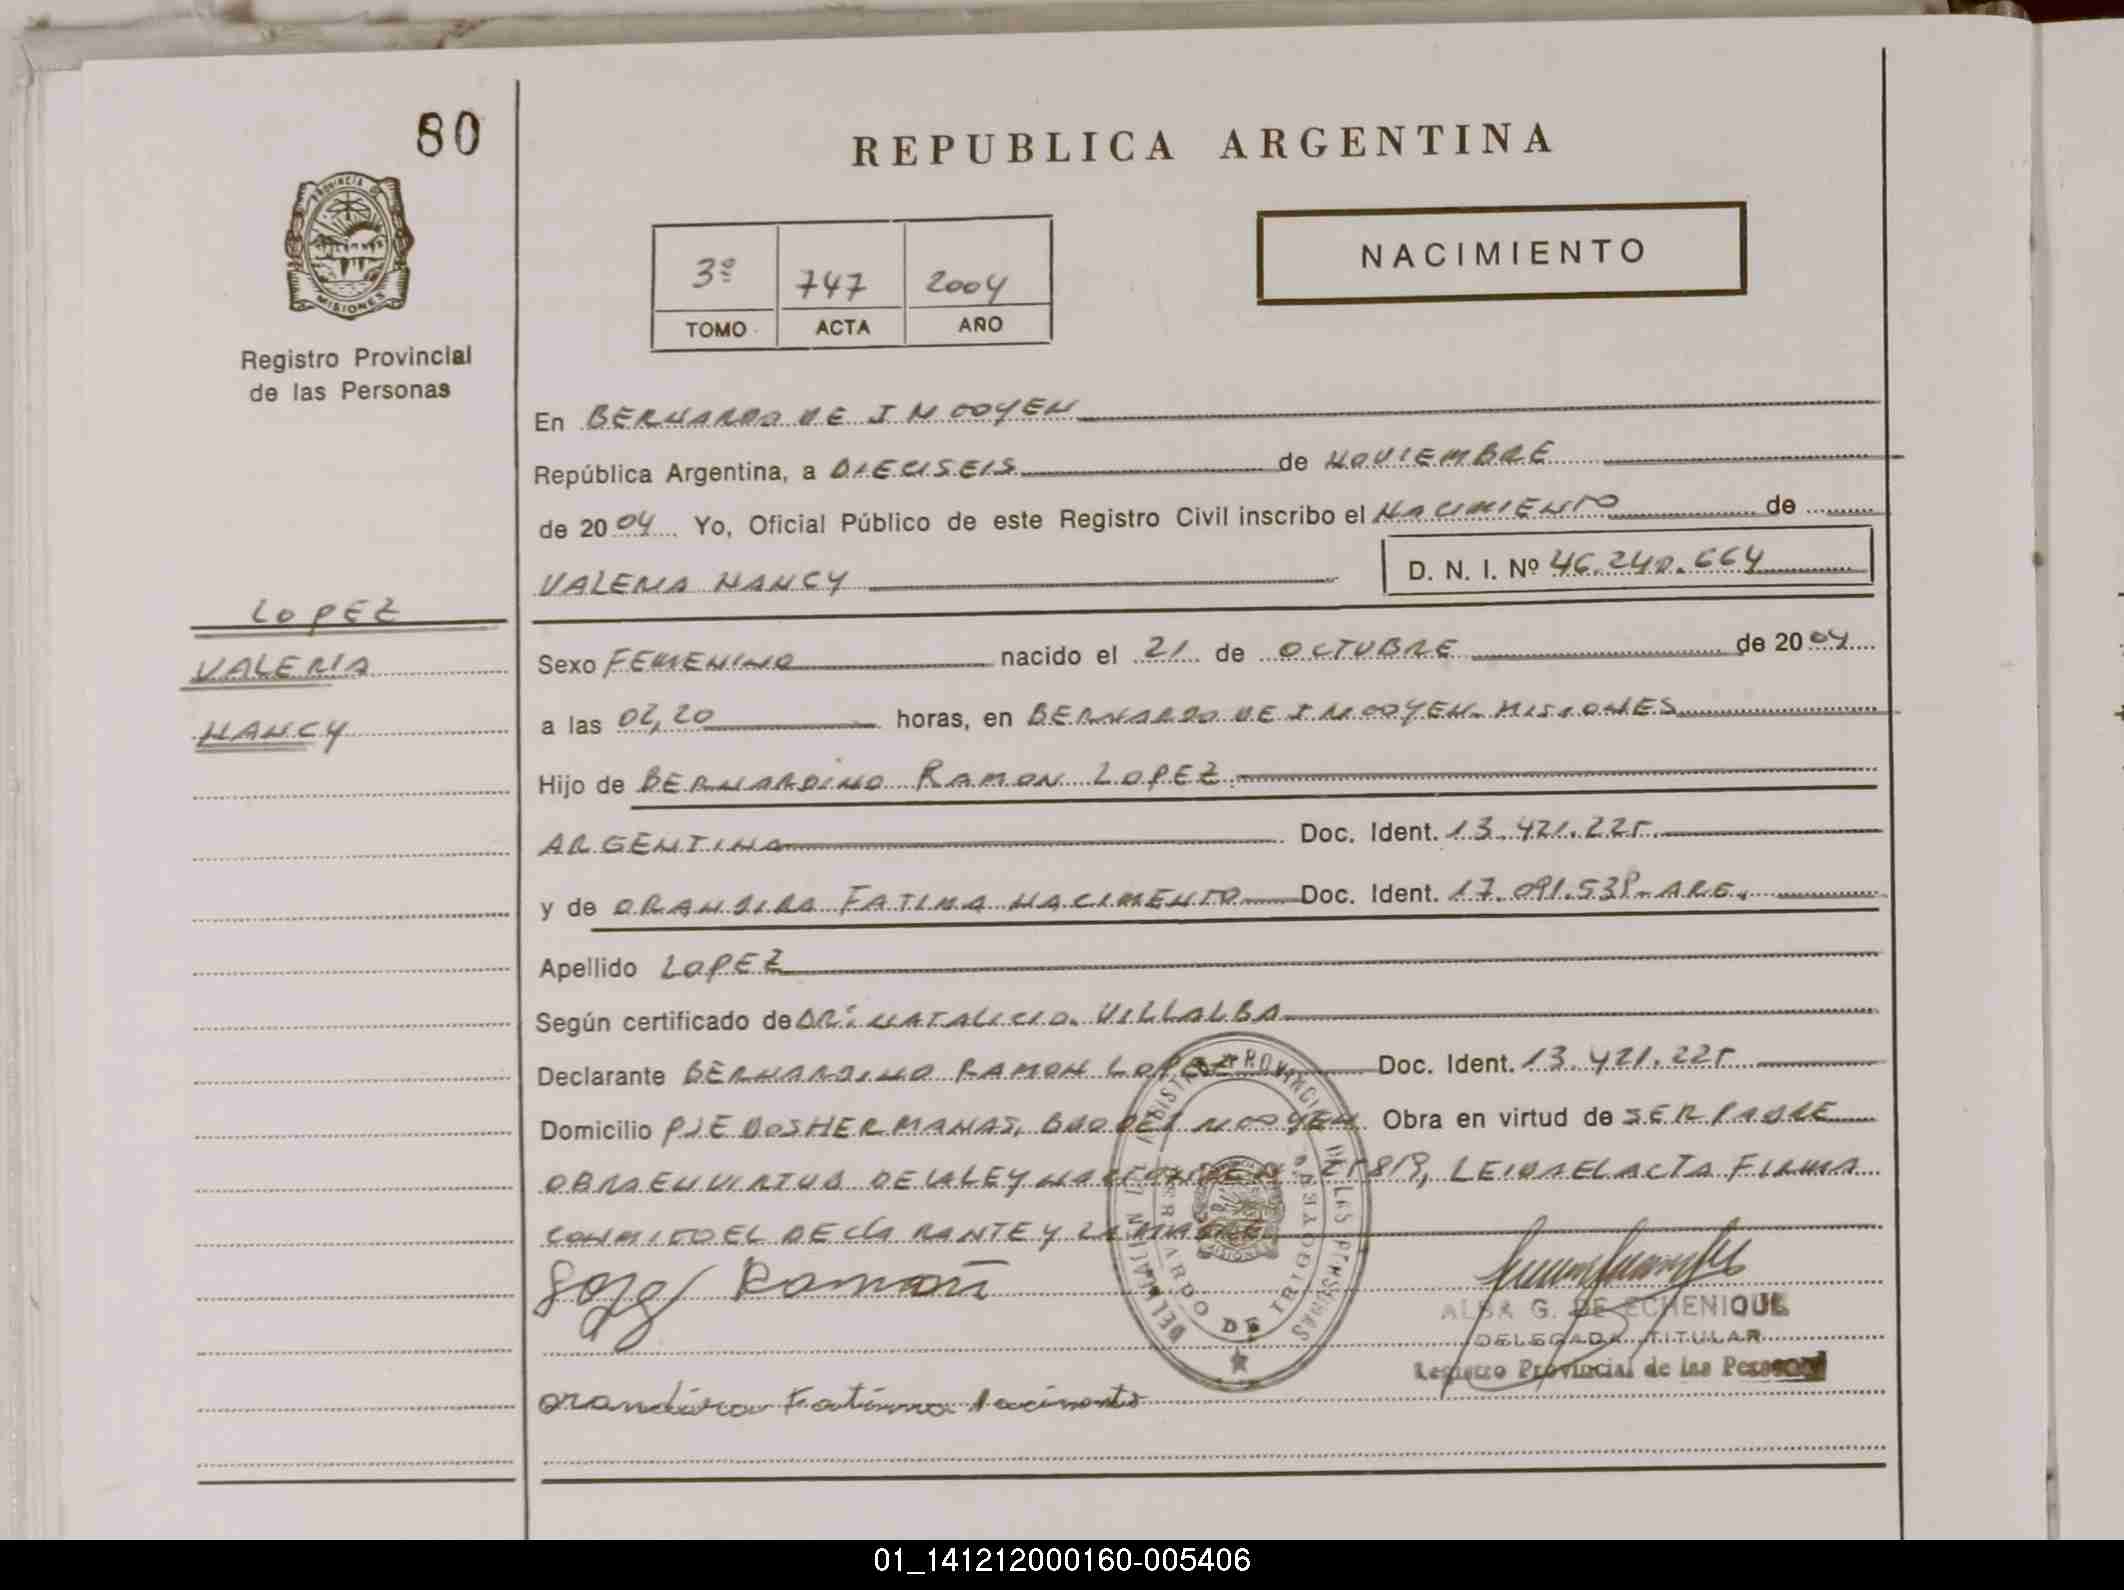 80
REPUBLICA ARGENTINA
PROVINCIA DE
MISIONES
Registro Provincial
de las Personas
3º 747 2004
TOMO ACTA AÑO
NACIMIENTO
En BERNARDO DE IRIGOYEN
República Argentina, a DIECISEIS de NOVIEMBRE
de 2004 Yo, Oficial Público de este Registro Civil inscribo el NACIMIENTO de
VALERIA NANCY D. N. I. Nº 46.240.664
LOPEZ
VALERIA
NANCY
Sexo FEMENINO nacido el 21 de OCTUBRE de 2004
a las 02,20 horas, en BERNARDO DE IRIGOYEN-MISIONES
Hijo de BERNARDINO RAMON LOPEZ
ARGENTINA Doc. Ident. 13.421.225
y de ORANDIRA FATIMA NACIMENTO Doc. Ident. 17.091.538-ARG.
Apellido LOPEZ
Según certificado de DR: NATALICIO VILLALBA
Declarante BERNARDINO RAMON LOPEZ Doc. Ident. 13.421.225
Domicilio PJE DOSHERMANAS, BDO DE IRIGOYEN Obra en virtud de SER PADRE
OBRA EN VIRTUD DE LA LEY NACIONAL Nº 25819, LEIDA EL ACTA FIRMA
CONMIGO EL DECLARANTE Y LA MADRE
Ramon
Orandira Fatima Nacimento
DE LAS PERSONAS
BERNARDO DE IRIGOYEN
ALBA G. DE ECHENIQUE
DELEGADA TITULAR
Registro Provincial de las Personas
01_141212000160-005406